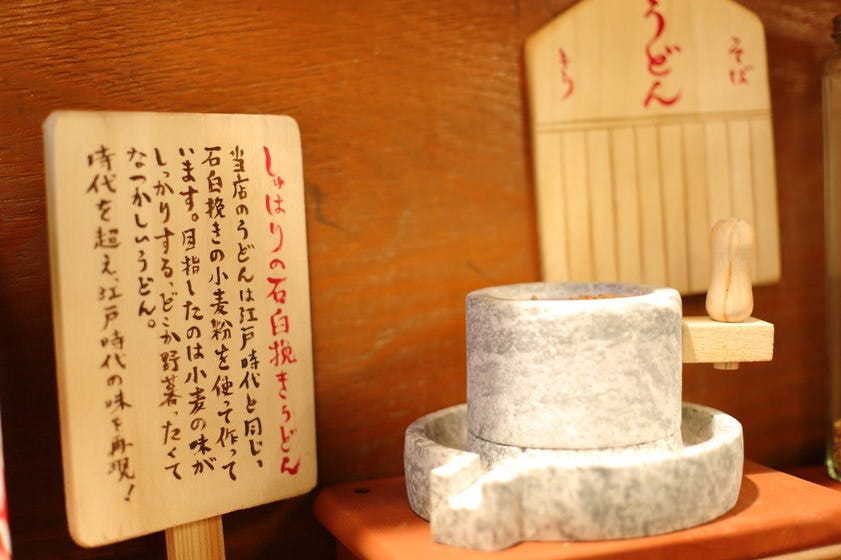 しゅはりの石臼挽きうどん
当店のうどんは江戸時代と同じ、
石臼挽きの小麦粉を使って作って
います。目指したのは小麦の味が
しっかりする、どこか野暮ったくて
なつかしいうどん。
時代を超え、江戸時代の味を再現！
そば
うどん